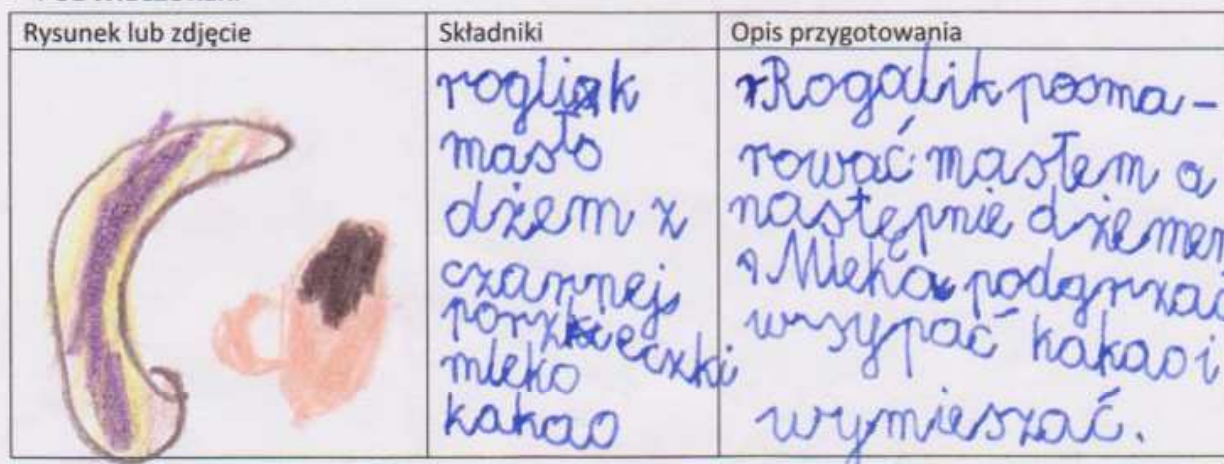 Rysunek lub zdjęcie
Składniki
Opis przygotowania
roglik
masło
dżem z
czarnej
porzeczki
mleko
kakao
Rogalik posma-
rować masłem a
następnie dżemem
Mleko podgrzać
wsypać kakao i
wymieszać.